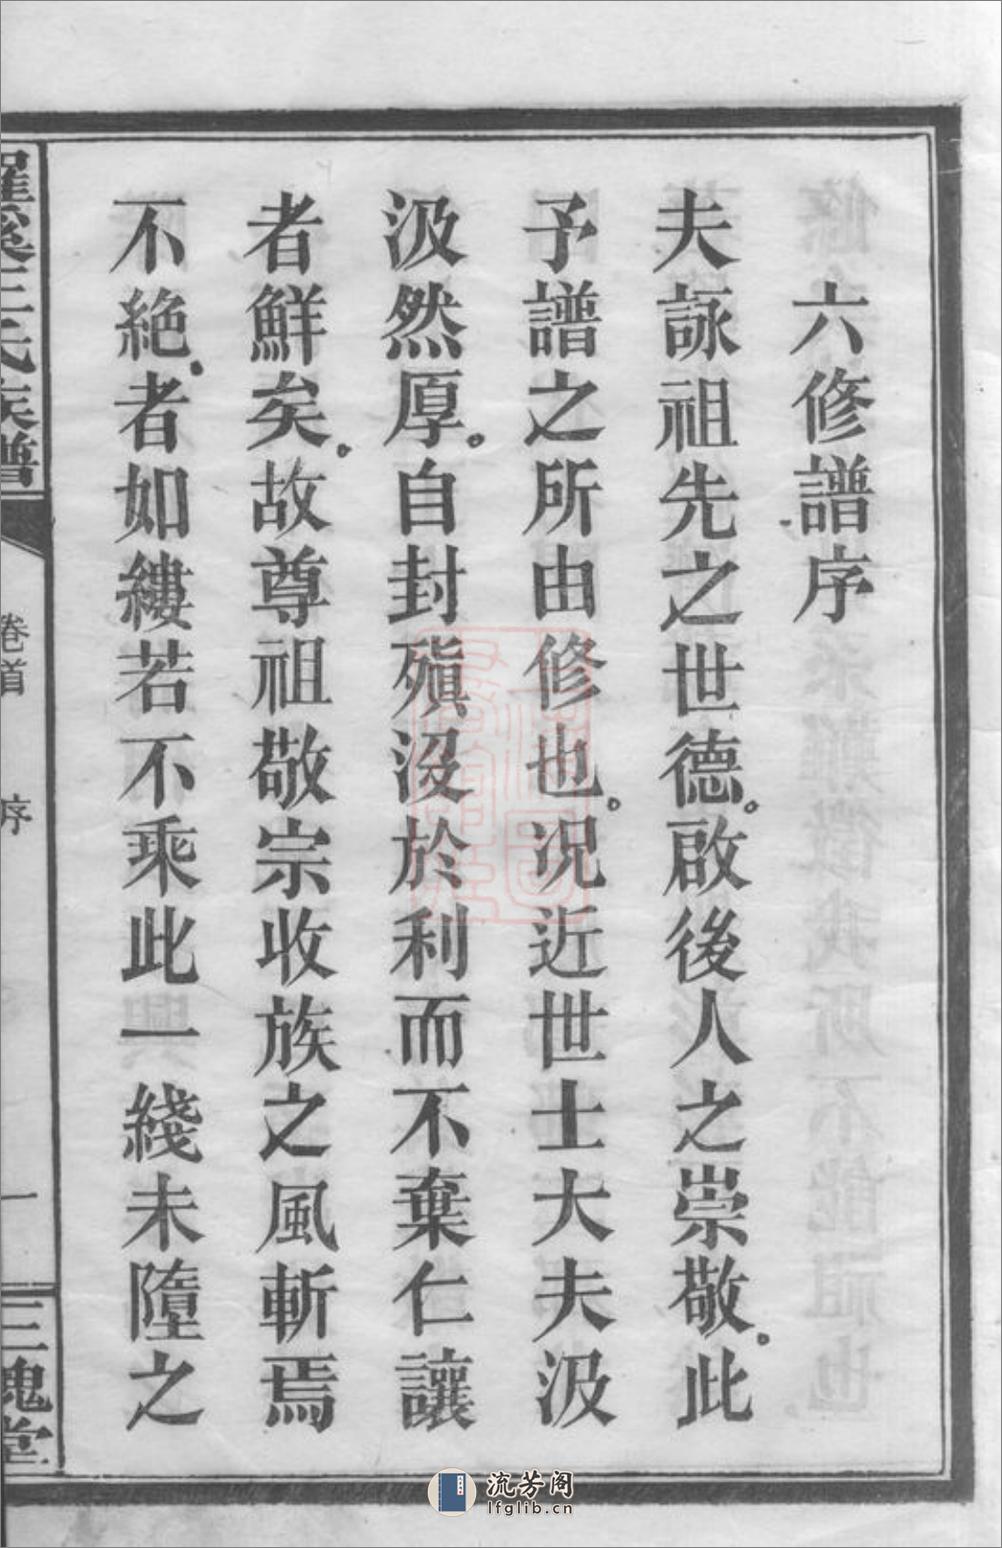 六修譜序
夫詠祖先之世德。啟後人之崇敬。此
予譜之所由修也。況近世士大夫汲
汲然厚。自封殖没於利而不棄仁讓
者鮮矣。故尊祖敬宗收族之風斬焉
不絶。者如縷若不乘此一綫未墮之
王氏族譜
卷首
序
一
三槐堂
流芳阁
lfglib.cn